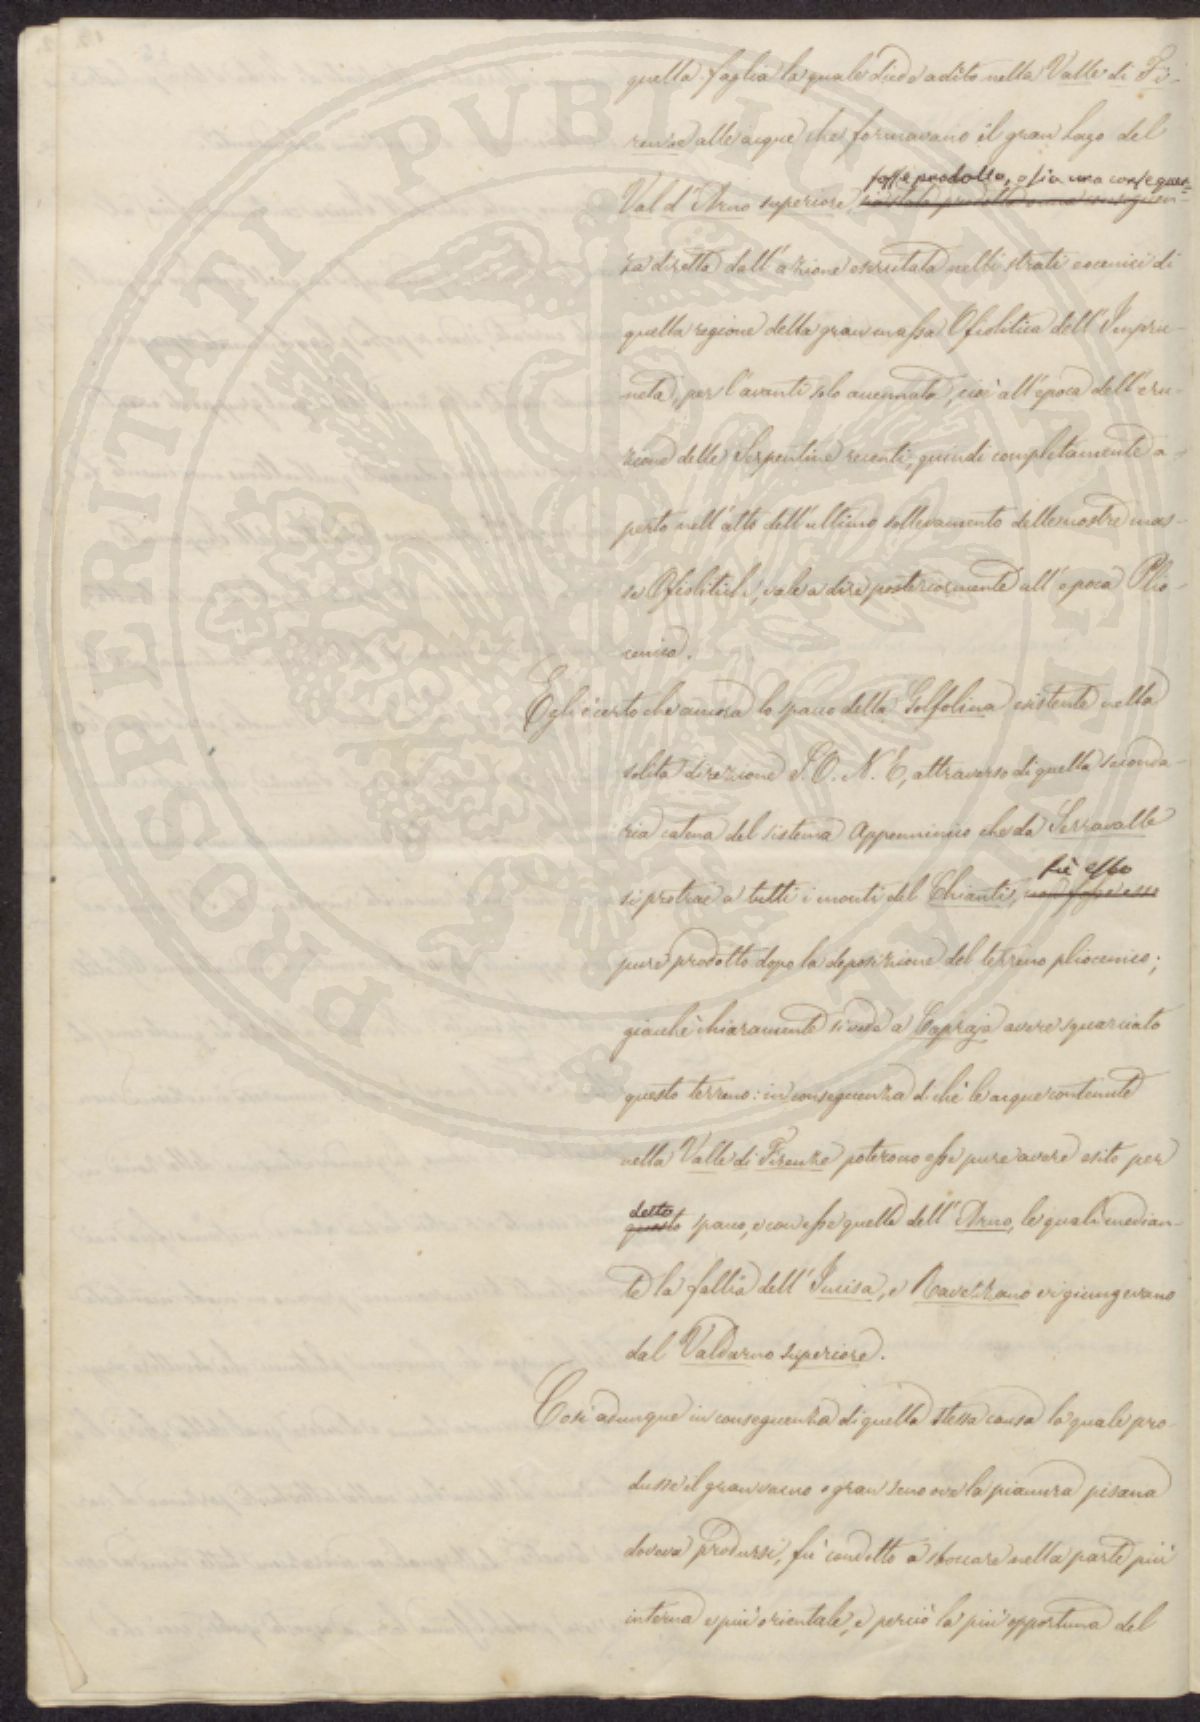 quella faglia la quale diede adito nella Valle di Fi-
renze alle acque che formavano il gran Lago del
fosse prodotta, o sia una conseguen-
Val d'Arno superiore, sia stata prodotta una conseguen-
za diretta dall'azione esercitata nelli strati eocenici di
quella regione della gran massa Ofiolitica dell'Impru-
neta, per l'avanti solo accennata, cioè all'epoca dell'eru-
zione delle Serpentine recenti, quindi completamente a-
perto nell'atto dell'ultimo sollevamento delle nostre mas-
se Ofiolitiche, vale a dire posteriormente all'epoca Plio-
cenica.
Egli è certo che ancora lo spacco della Golfolina esistente nella
solita direzione S.O. N.E, attraverso di quella seconda-
ria catena del sistema Appenninico che da Serravalle
fù esso
si protrae a tutti i monti del Chianti, non fosse esso
pure prodotto dopo la deposizione del terreno pliocenico;
giacchè chiaramente si vede a Capraja avere squarciato
questo terreno: in conseguenza di chè le acque contenute
nella Valle di Firenze poterono esse pure avere esito per
detto
questo spacco, e con esse quelle dell'Arno, le quali median-
te la fallia dell'Incisa, e Ravezzano vi giungevano
dal Valdarno superiore.
Così adunque in conseguenza di quella stessa causa la quale pro-
dusse il gran vacuo o gran seno ove la pianura pisana
doveva prodursi, fù condotto a sboccare nella parte più
interna e più orientale, e perciò la più opportuna del
PROSPERITATI PVBLICAE AVGENDAE